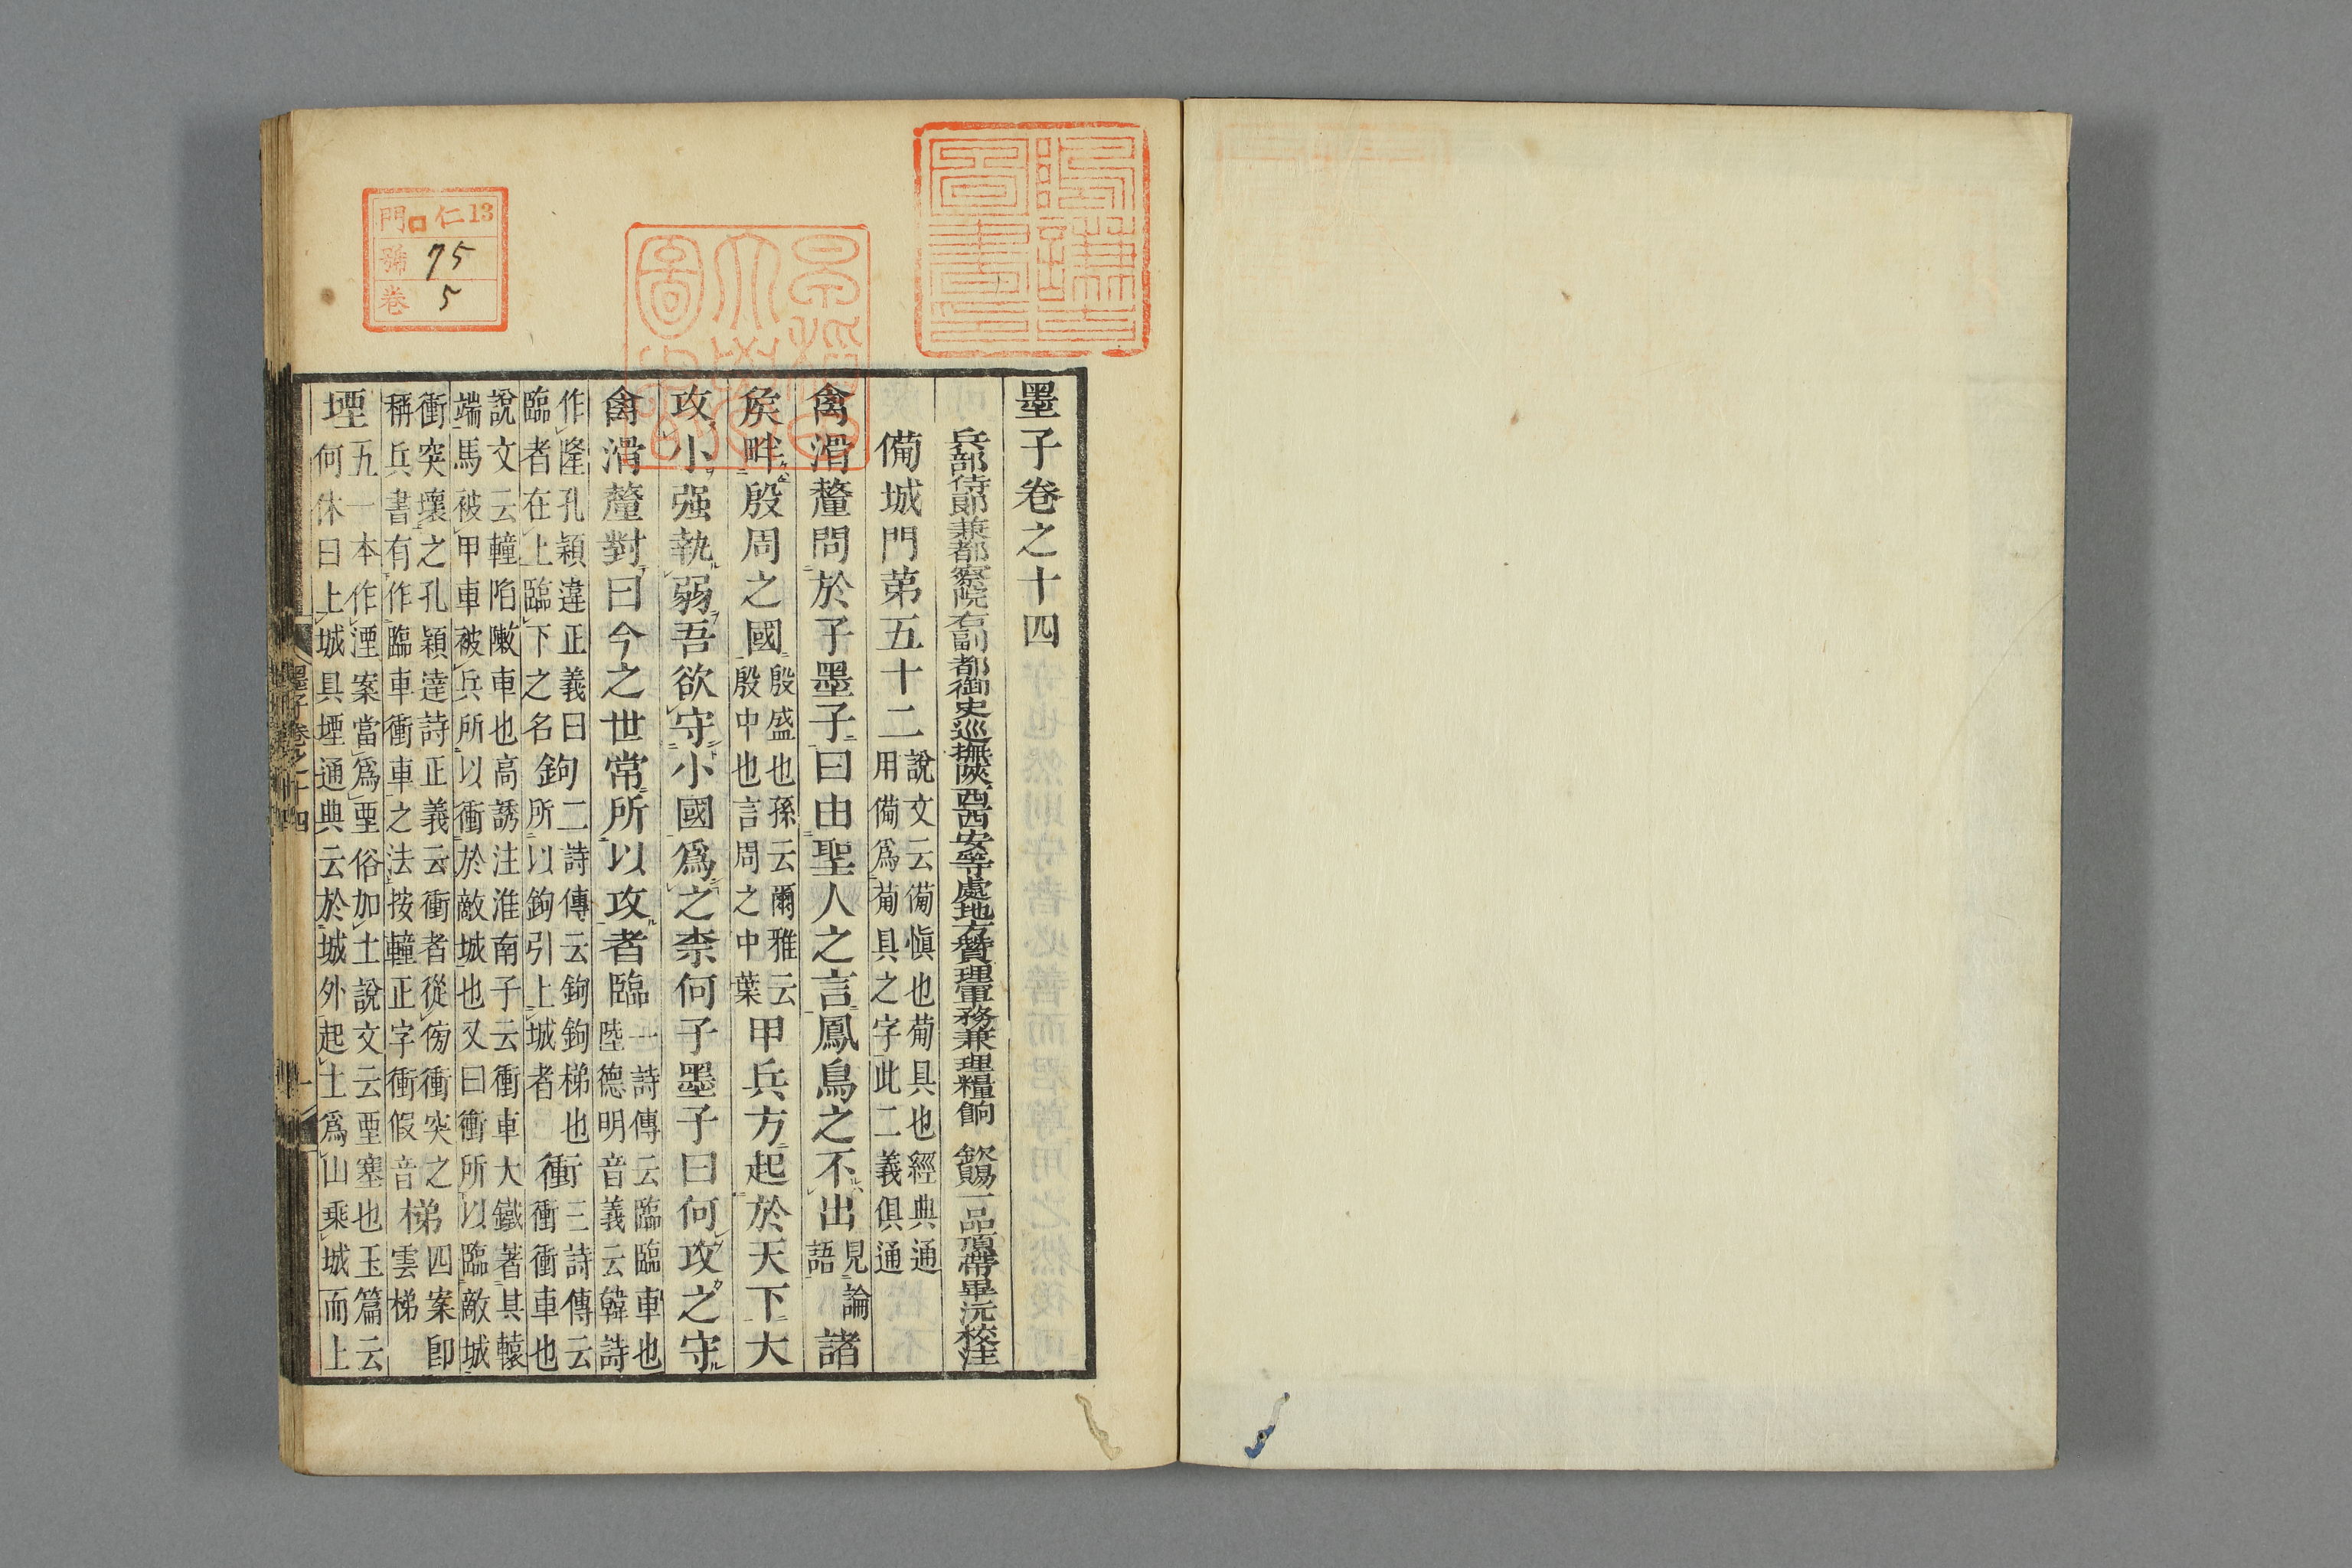 墨子卷之十四
兵部侍郎兼都察院右副都御史巡撫陝西西安等處地方贊理軍務兼理糧餉 欽賜一品頂帶畢沅校注
備城門第五十二 說文云備愼也葡具也經典通用備爲葡具之字此二義俱通
禽滑釐問於子墨子曰由聖人之言鳳鳥之不出 見論語 諸
矦畔殷周之國 殷盛也孫云爾雅云殷中也言周之中葉 甲兵方起於天下大
攻小强執弱吾欲守小國爲之柰何子墨子曰何攻之守
禽滑釐對曰今之世常所以攻者臨 一詩傳云臨臨車也陸德明音義云韓詩
作隆孔穎達正義曰臨者在上臨下之名 鉤 二詩傳云鉤鉤梯也所以鉤引上城者 衝 三詩傳云衝衝車也
說文云轒陷敶車也高誘注淮南子云衝車大鐵著其轅端馬被甲車被兵所以衝於敵城也又曰衝所以臨敵城
衝突壞之孔穎達詩正義云衝者從傍衝突之稱兵書有作臨車衝車之法按轒正字衝假音 梯 四案卽雲梯
堙 五一本作湮案當爲垔俗加土說文云垔塞也玉篇云何休曰上城具堙通典云於城外起土爲山乘城而上
墨子卷之十四
一
門 仁13
號 75
卷 5